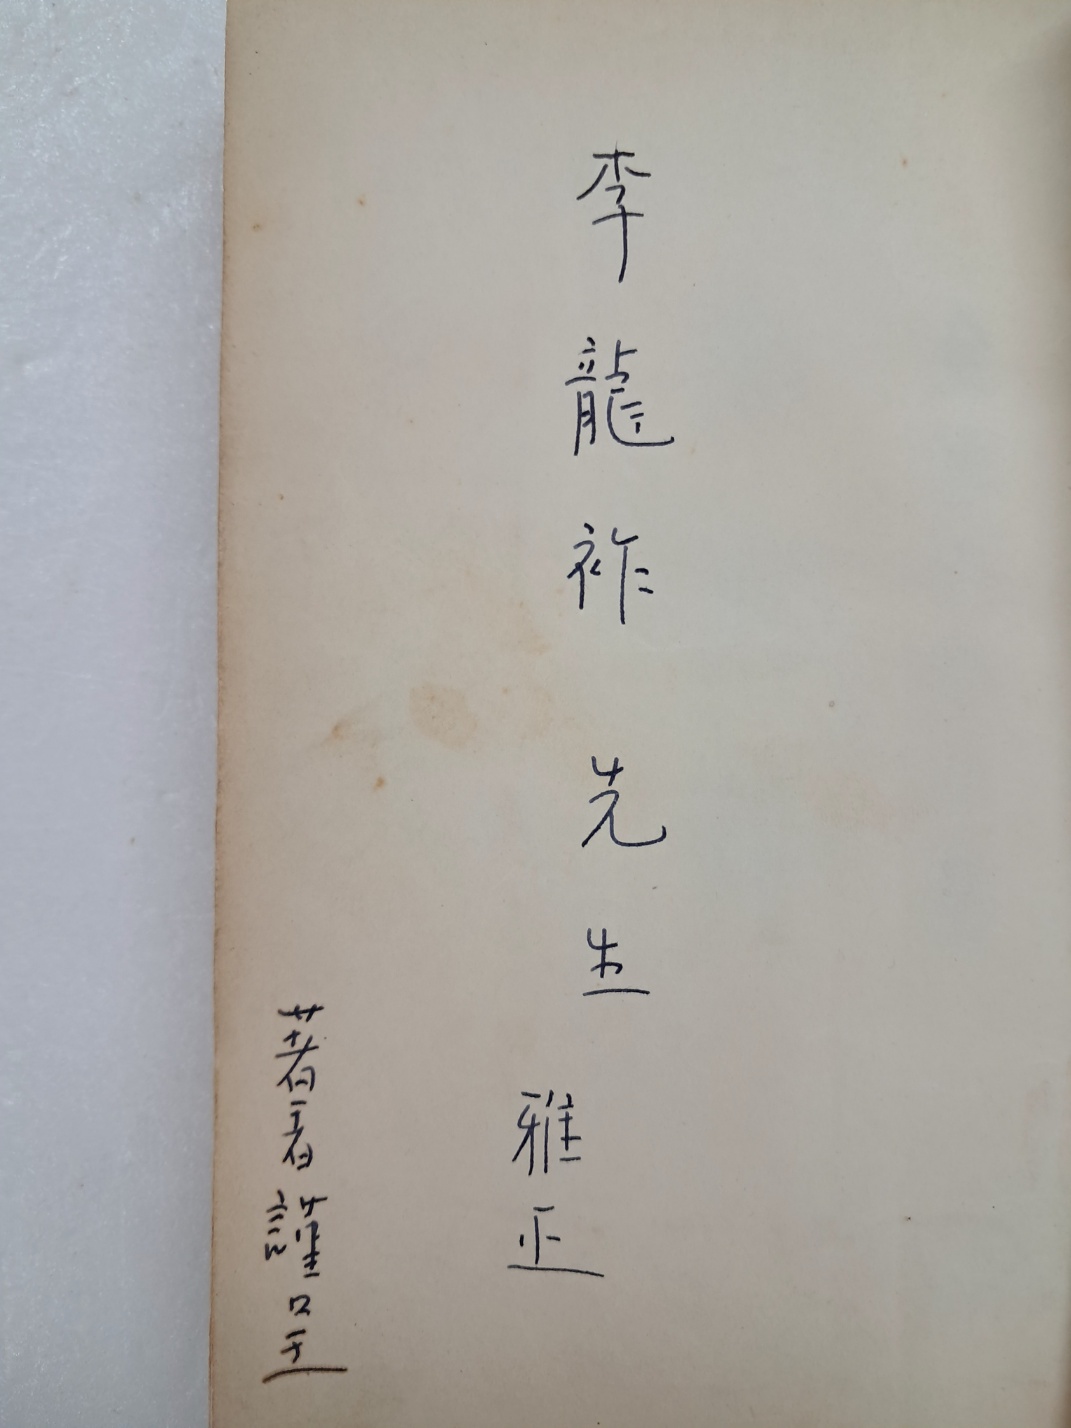 李龍祚先生
雅正
著者謹呈